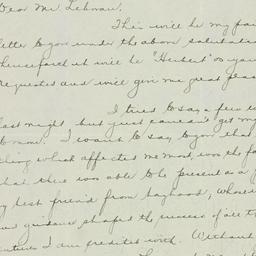 Dear Mr. Lehman:
This will be my
letter to you under the above salutation
henceforth it will be "Herbert" as you
requested and will give me great
I tried to say a few
last night but just couldn't get
to mine. I want to say to you that
thing which affected me most, was the
that this was able to be present as a
my best friend from boyhood, whose
guidance shaped the success of all
I am credited with. Without